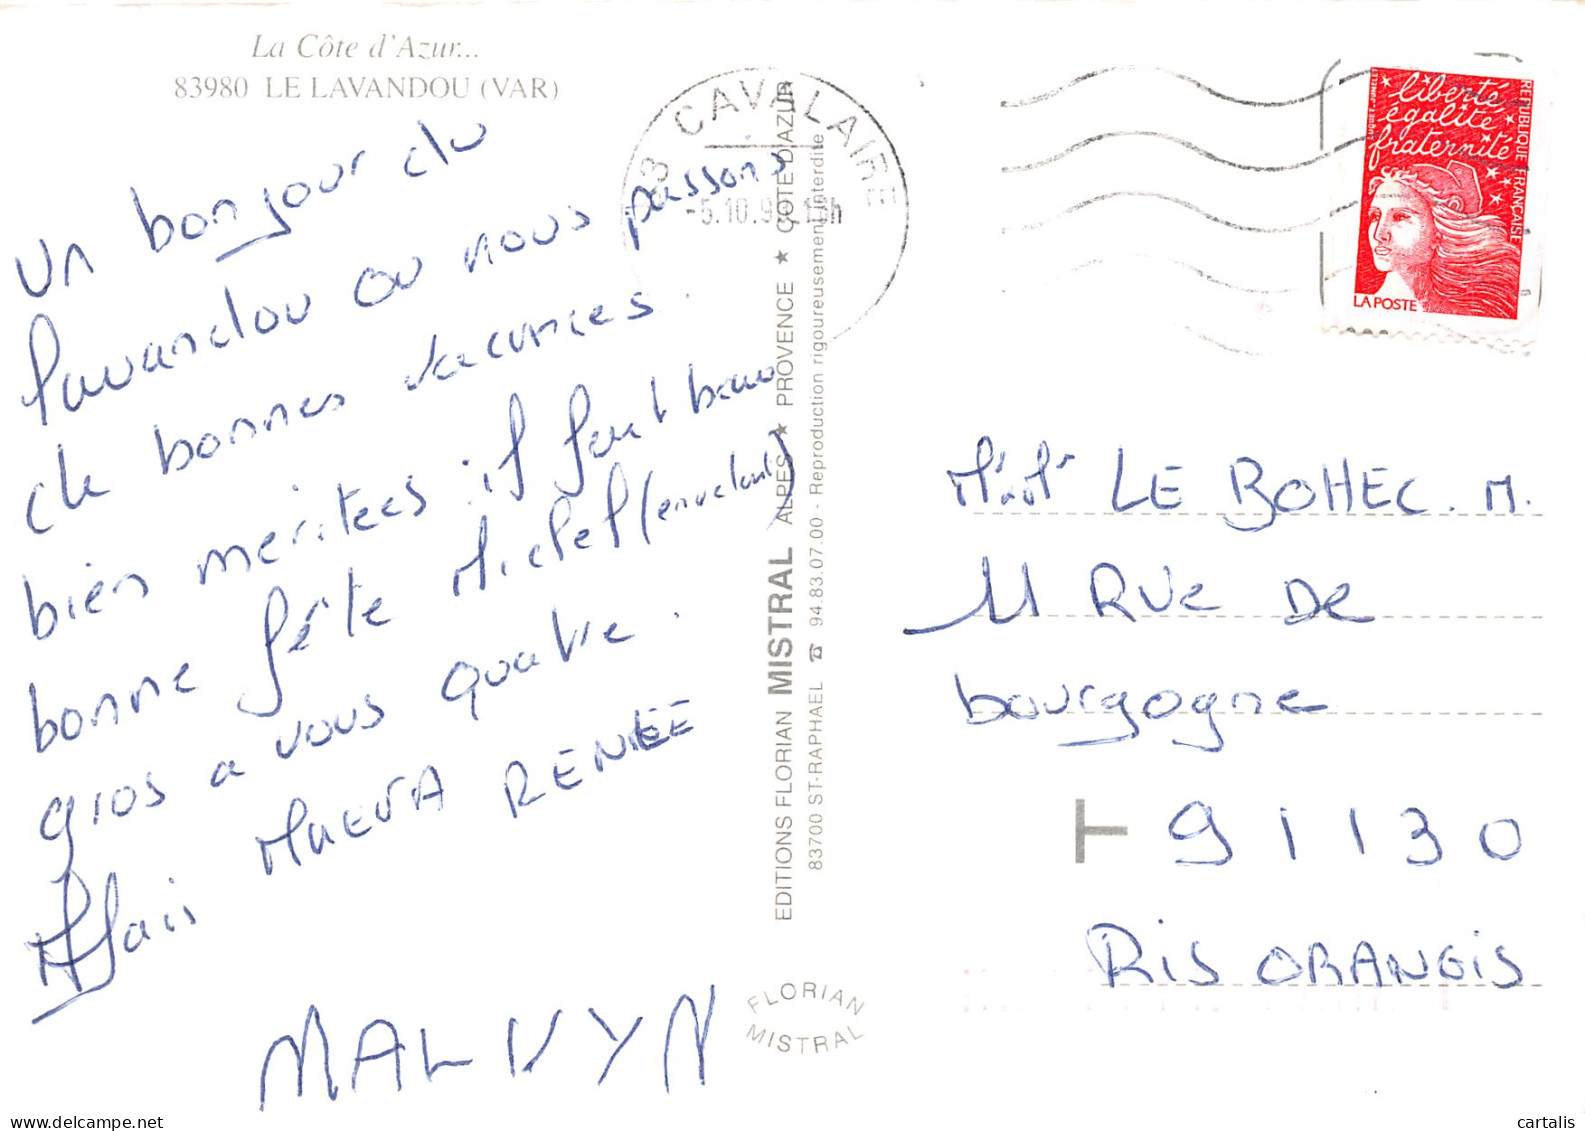 La Côte d'Azur...
83980 LE LAVANDOU (VAR)
un bonjour du
lavandou ou nous passons
de bonnes vacances.
bien méritées il fait beau
bonne fête Michel (en retard)
gros a vous quatre.
Alais MAEVA RENÉE
MALVYN
83 CAVALAIRE
EDITIONS FLORIAN MISTRAL ALPES ★ PROVENCE ★ CÔTE D'AZUR
83700 ST-RAPHAEL ☎ 94.83.07.00 - Reproduction rigoureusement interdite
FLORIAN
MISTRAL
liberté
égalité
fraternité
REPUBLIQUE FRANÇAISE
LA POSTE
LE BOHEC. M.
11 RUe De
bourgogne
91130
RIS ORANGIS
cartalis